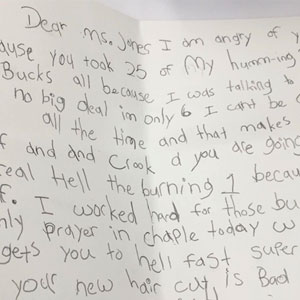 Dear Ms. Jones I am angry of y
ause you took 25 of My humm-ing
Bucks all because I was talking to
no big deal im only 6 I cant be q
all the time and that makes
f and and Crook d you are going
real Hell the burning 1 becau
f. I worked hard for those bu
nly prayer in chaple today w
gets you to hell fast super
your new hair cut is Bad